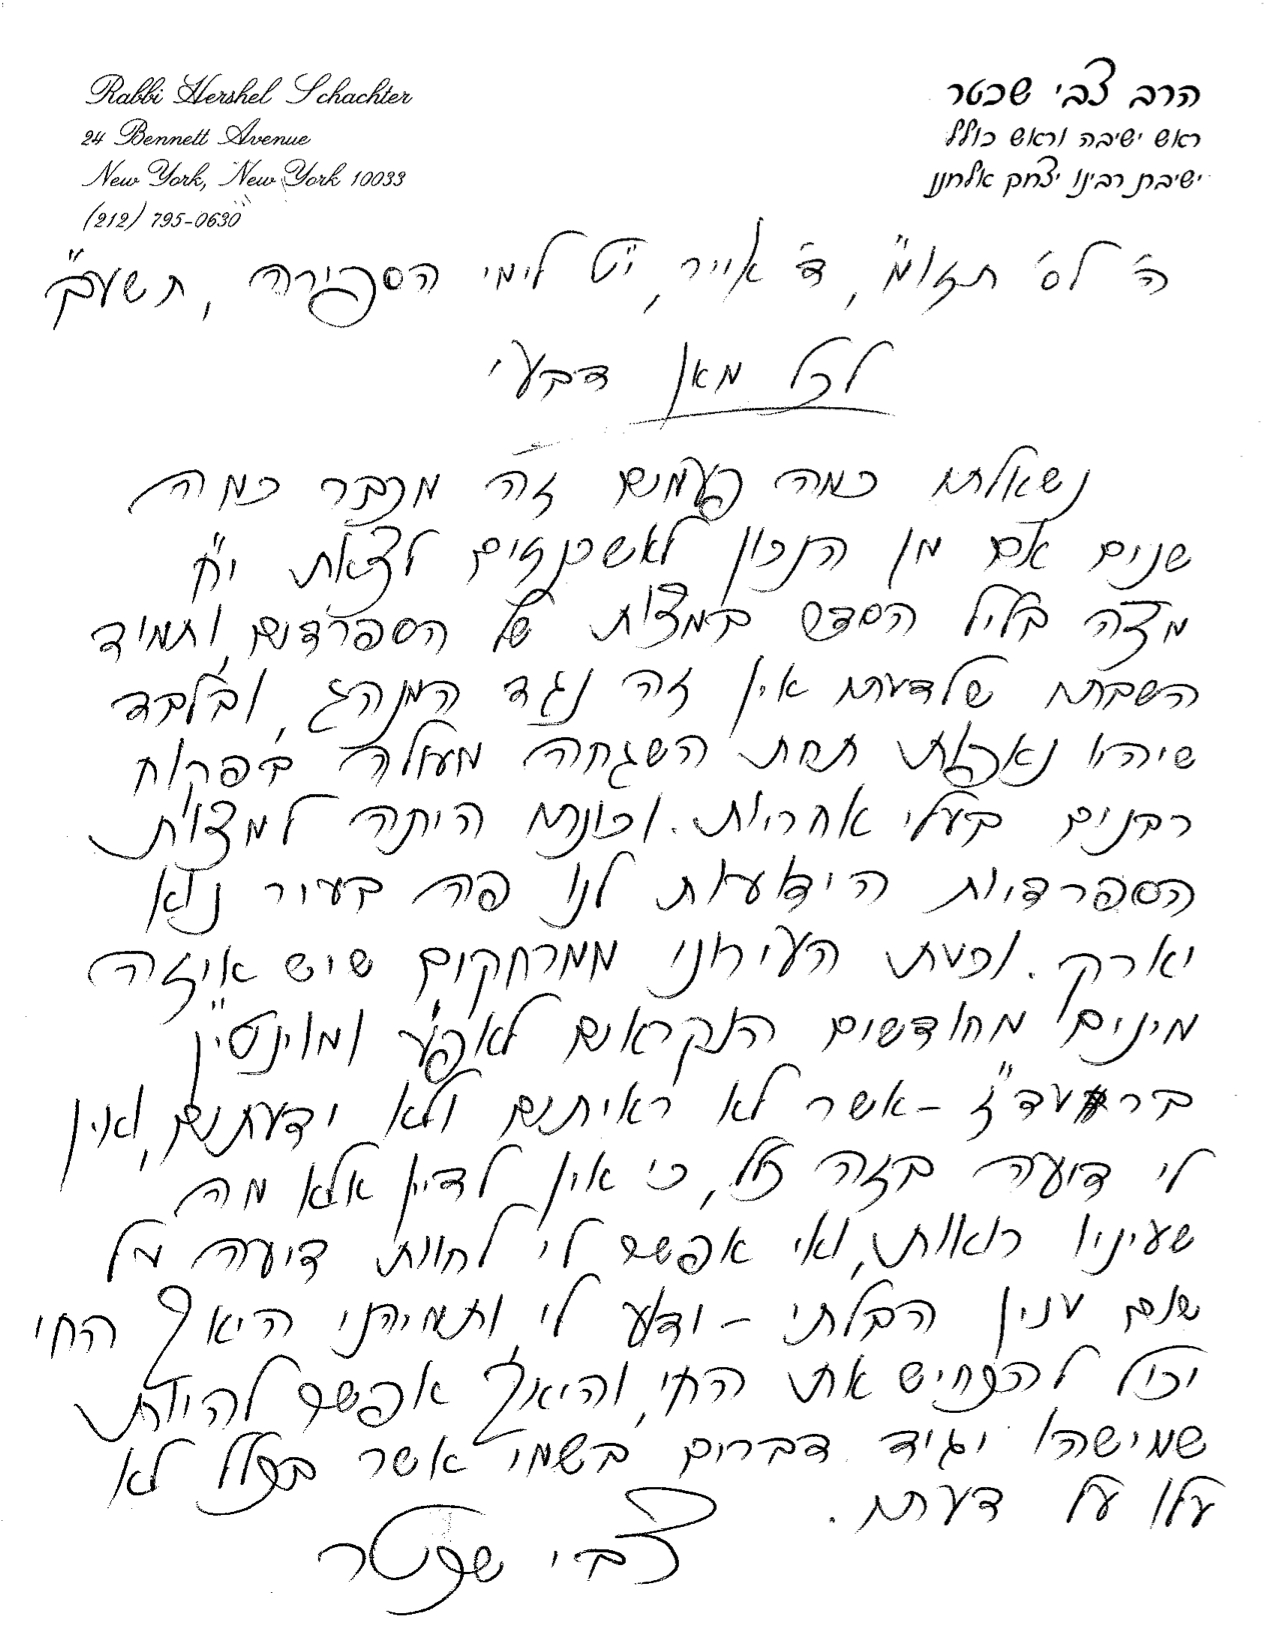 Rabbi Hershel Schachter
24 Bennett Avenue
New York, New York 10033
(212) 795-0630
הרב צבי שכטר
ראש ישיבה וראש כולל
ישיבת רבינו יצחק אלחנן
ה' לס' תזו"מ, ד' אייר, י"ט לימי הספירה, תשע"ב
לכל מאן דבעי
נשאלתי כמה פעמים זה מכבר כמה
שנים אם מן הנכון לאשכנזים לצאת י"ח
מצה בליל הסדר במצות של הספרדים, ותמיד
השבתי שלדעתי אין זה נגד המנהג, ובלבד
שיהיו נאפות תחת השגחה מעולה בפקוח
רבנים בעלי אחריות. וכונתי היתה למצות
הספרדיות הידועות לנו פה בעיר נוא
יארק. וכעת העירוני ממרחקים שיש איזה
מינים מחודשים הנקראים לאפע ומוינט"ן
ברעד"ז – אשר לא ראיתים ולא ידעתים, ואין
לי דיעה בזה כלל, כי אין לדיין אלא מה
שעיניו רואות, ואי אפשר לי לחוות דיעה על
שום ענין הבלתי – ידוע לי ותמיהני היאך החי
יכול להכחיש את החי, והיאך אפשר להיות
שמישהו יגיד דברים בשמי אשר בכלל לא
עלו על דעתי.
צבי שכטר